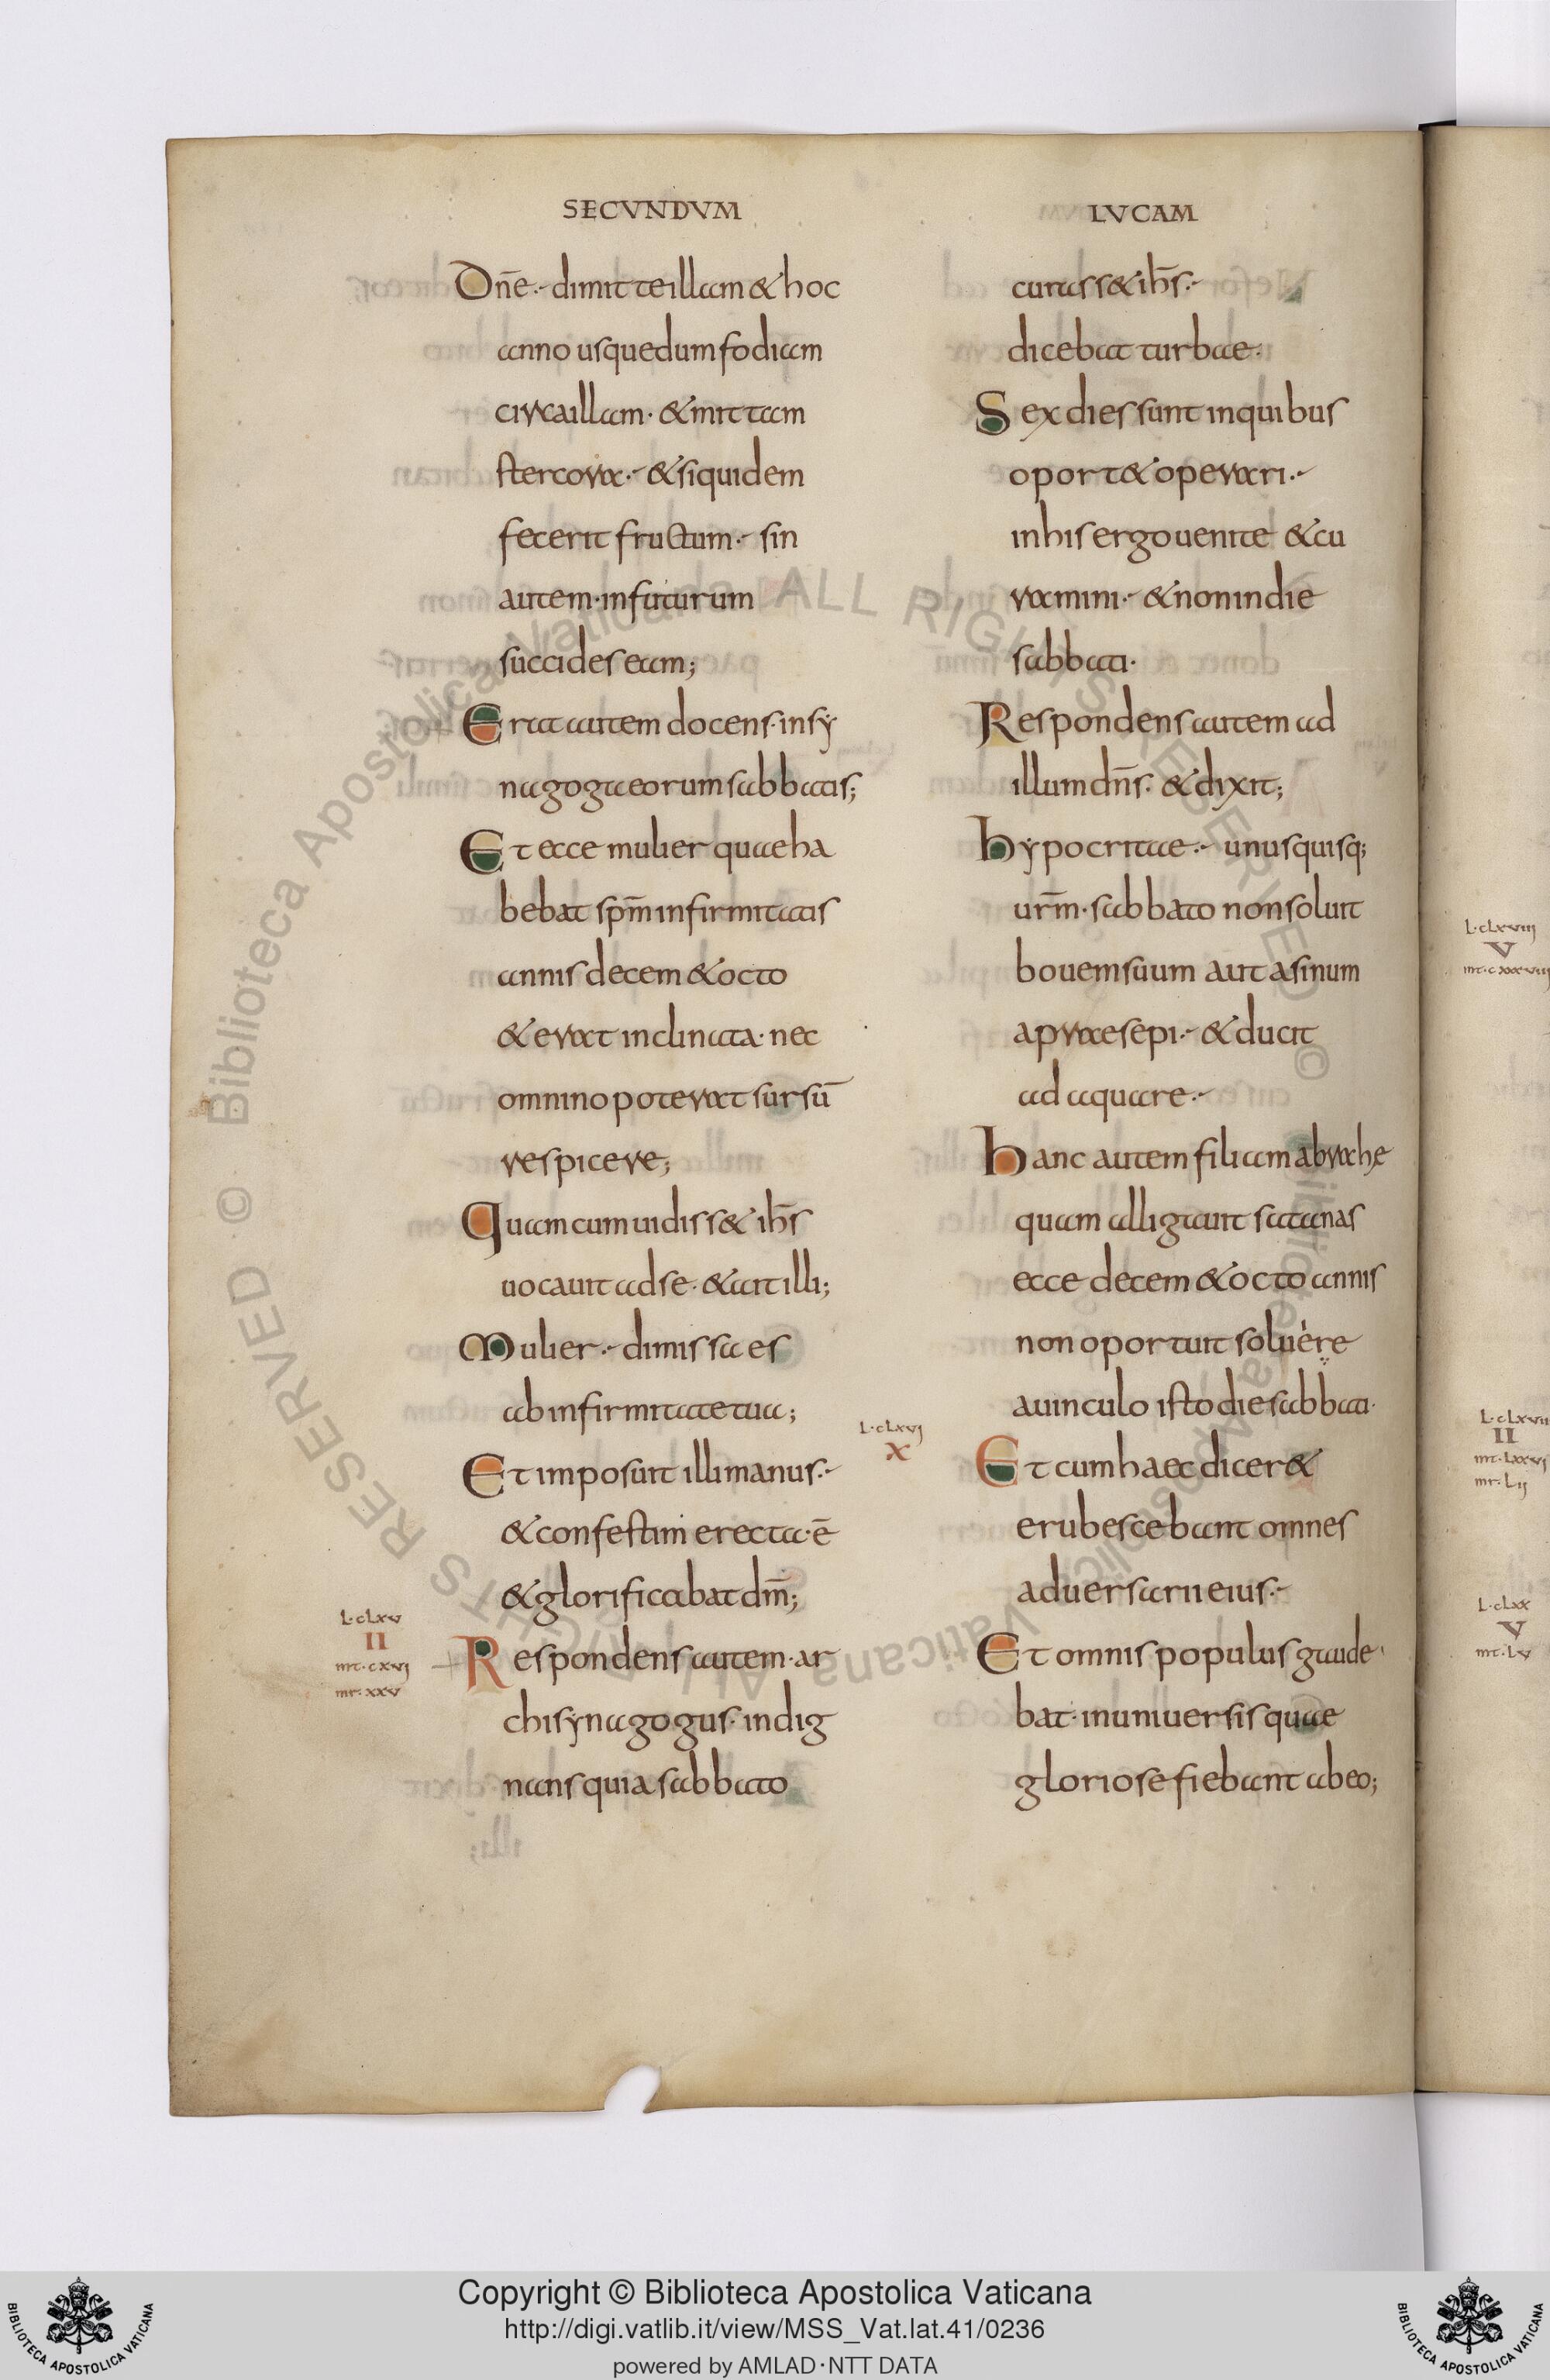 SECVNDVM
Dn̄e · dimitte illam & hoc
anno usque dum fodiam
circa illam · & mittam
stercora · & siquidem
fecerit fructum · sin
autem · in futurum
succides eam;
Erat autem docens · in sy
nagoga eorum sabbatis;
Et ecce mulier quae ha
bebat sp̄m infirmitatis
annis decem & octo
& erat inclinata · nec
omnino poterat sursū
respicere;
Quam cum uidiss& ih̄s
uocauit ad se · & ait illi;
Mulier · dimissa es
ab infirmitate tua;
Et imposuit illi manus ·
& confestim erecta · ē
& glorificabat dm̄;
L·cLxv
II
mt·cxvj
mr·xxv
Respondens autem · ar
chisynagogus · indig
nans quia sabbato
LVCAM
curass& ih̄s ·
dicebat turbae ·
Sex dies sunt in quibus
oport& operari ·
in his ergo uenite & cu
ramini · & non in die
sabbati ·
Respondens autem ad
illum dn̄s · & dixit;
hypocritae · unusquisq;
ur̄m · sabbato non soluit
bouem suum aut asinum
a praesepi · & ducit
ad aquare ·
hanc autem filiam abrahę
quam alligauit satanas
ecce decem & octo annis
non oportuit soluere
a uinculo isto die sabbati ·
L·cLxvj
X
Et cum haec dicer&
erubescebant omnes
aduersarii eius ·
Et omnis populus gaude
bat · in uniuersis quae
gloriose fiebant ab eo;
L·cLxviij
V
L·cLxx
V
mt·Lv
© Biblioteca Apostolica Vaticana ALL RIGHTS RESERVED
Copyright © Biblioteca Apostolica Vaticana
http://digi.vatlib.it/view/MSS_Vat.lat.41/0236
powered by AMLAD·NTT DATA
BIBLIOTECA APOSTOLICA VATICANA
BIBLIOTECA APOSTOLICA VATICANA